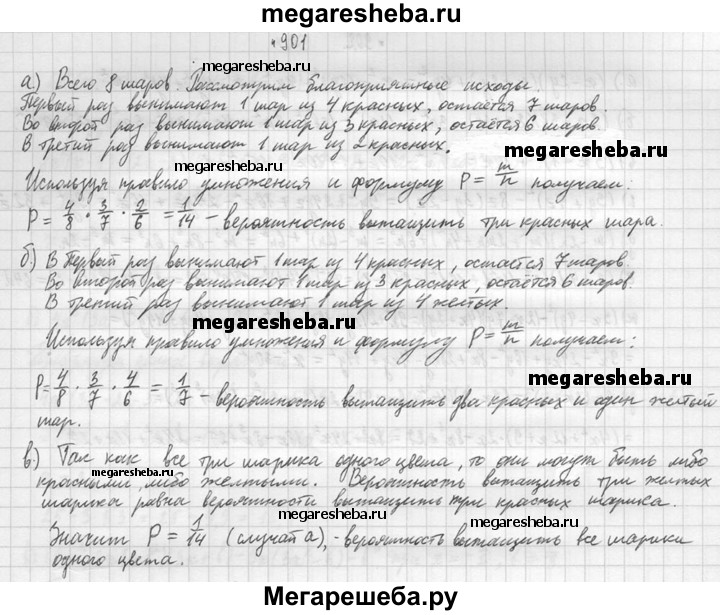 megaresheba.ru
901
а) Всего 8 шаров. Рассмотрим благоприятные исходы.
megaresheba.ru
Первый раз вынимают 1 шар из 4 красных, остаётся 7 шаров.
Во второй раз вынимают 1 шар из 3 красных, остаётся 6 шаров.
В третий раз вынимают 1 шар из 2 красных.
megaresheba.ru
megaresheba.ru
Используя правило умножения и формулу P = m/n получаем:
P = 4/8 · 3/7 · 2/6 = 1/14 – вероятность вытащить три красных шара.
megaresheba.ru
б) В Первый раз вынимают 1 шар из 4 красных, остаётся 7 шаров.
Во второй раз вынимают 1 шар из 3 красных, остаётся 6 шаров.
В третий раз вынимают 1 шар из 4 желтых.
megaresheba.ru
Используя правило умножения и формулу P = m/n получаем:
megaresheba.ru
P = 4/8 · 3/7 · 4/6 = 1/7 – вероятность вытащить два красных и один желтый
шар.
в) Так как все три шарика одного цвета, то они могут быть либо
megaresheba.ru
красными, либо желтыми. Вероятность вытащить три желтых
шарика равна вероятности вытащить три красных шарика.
megaresheba.ru
Значит P = 1/14 (случай а), - вероятность вытащить все шарики
одного цвета.
megaresheba.ru
Мегарешеба.ру